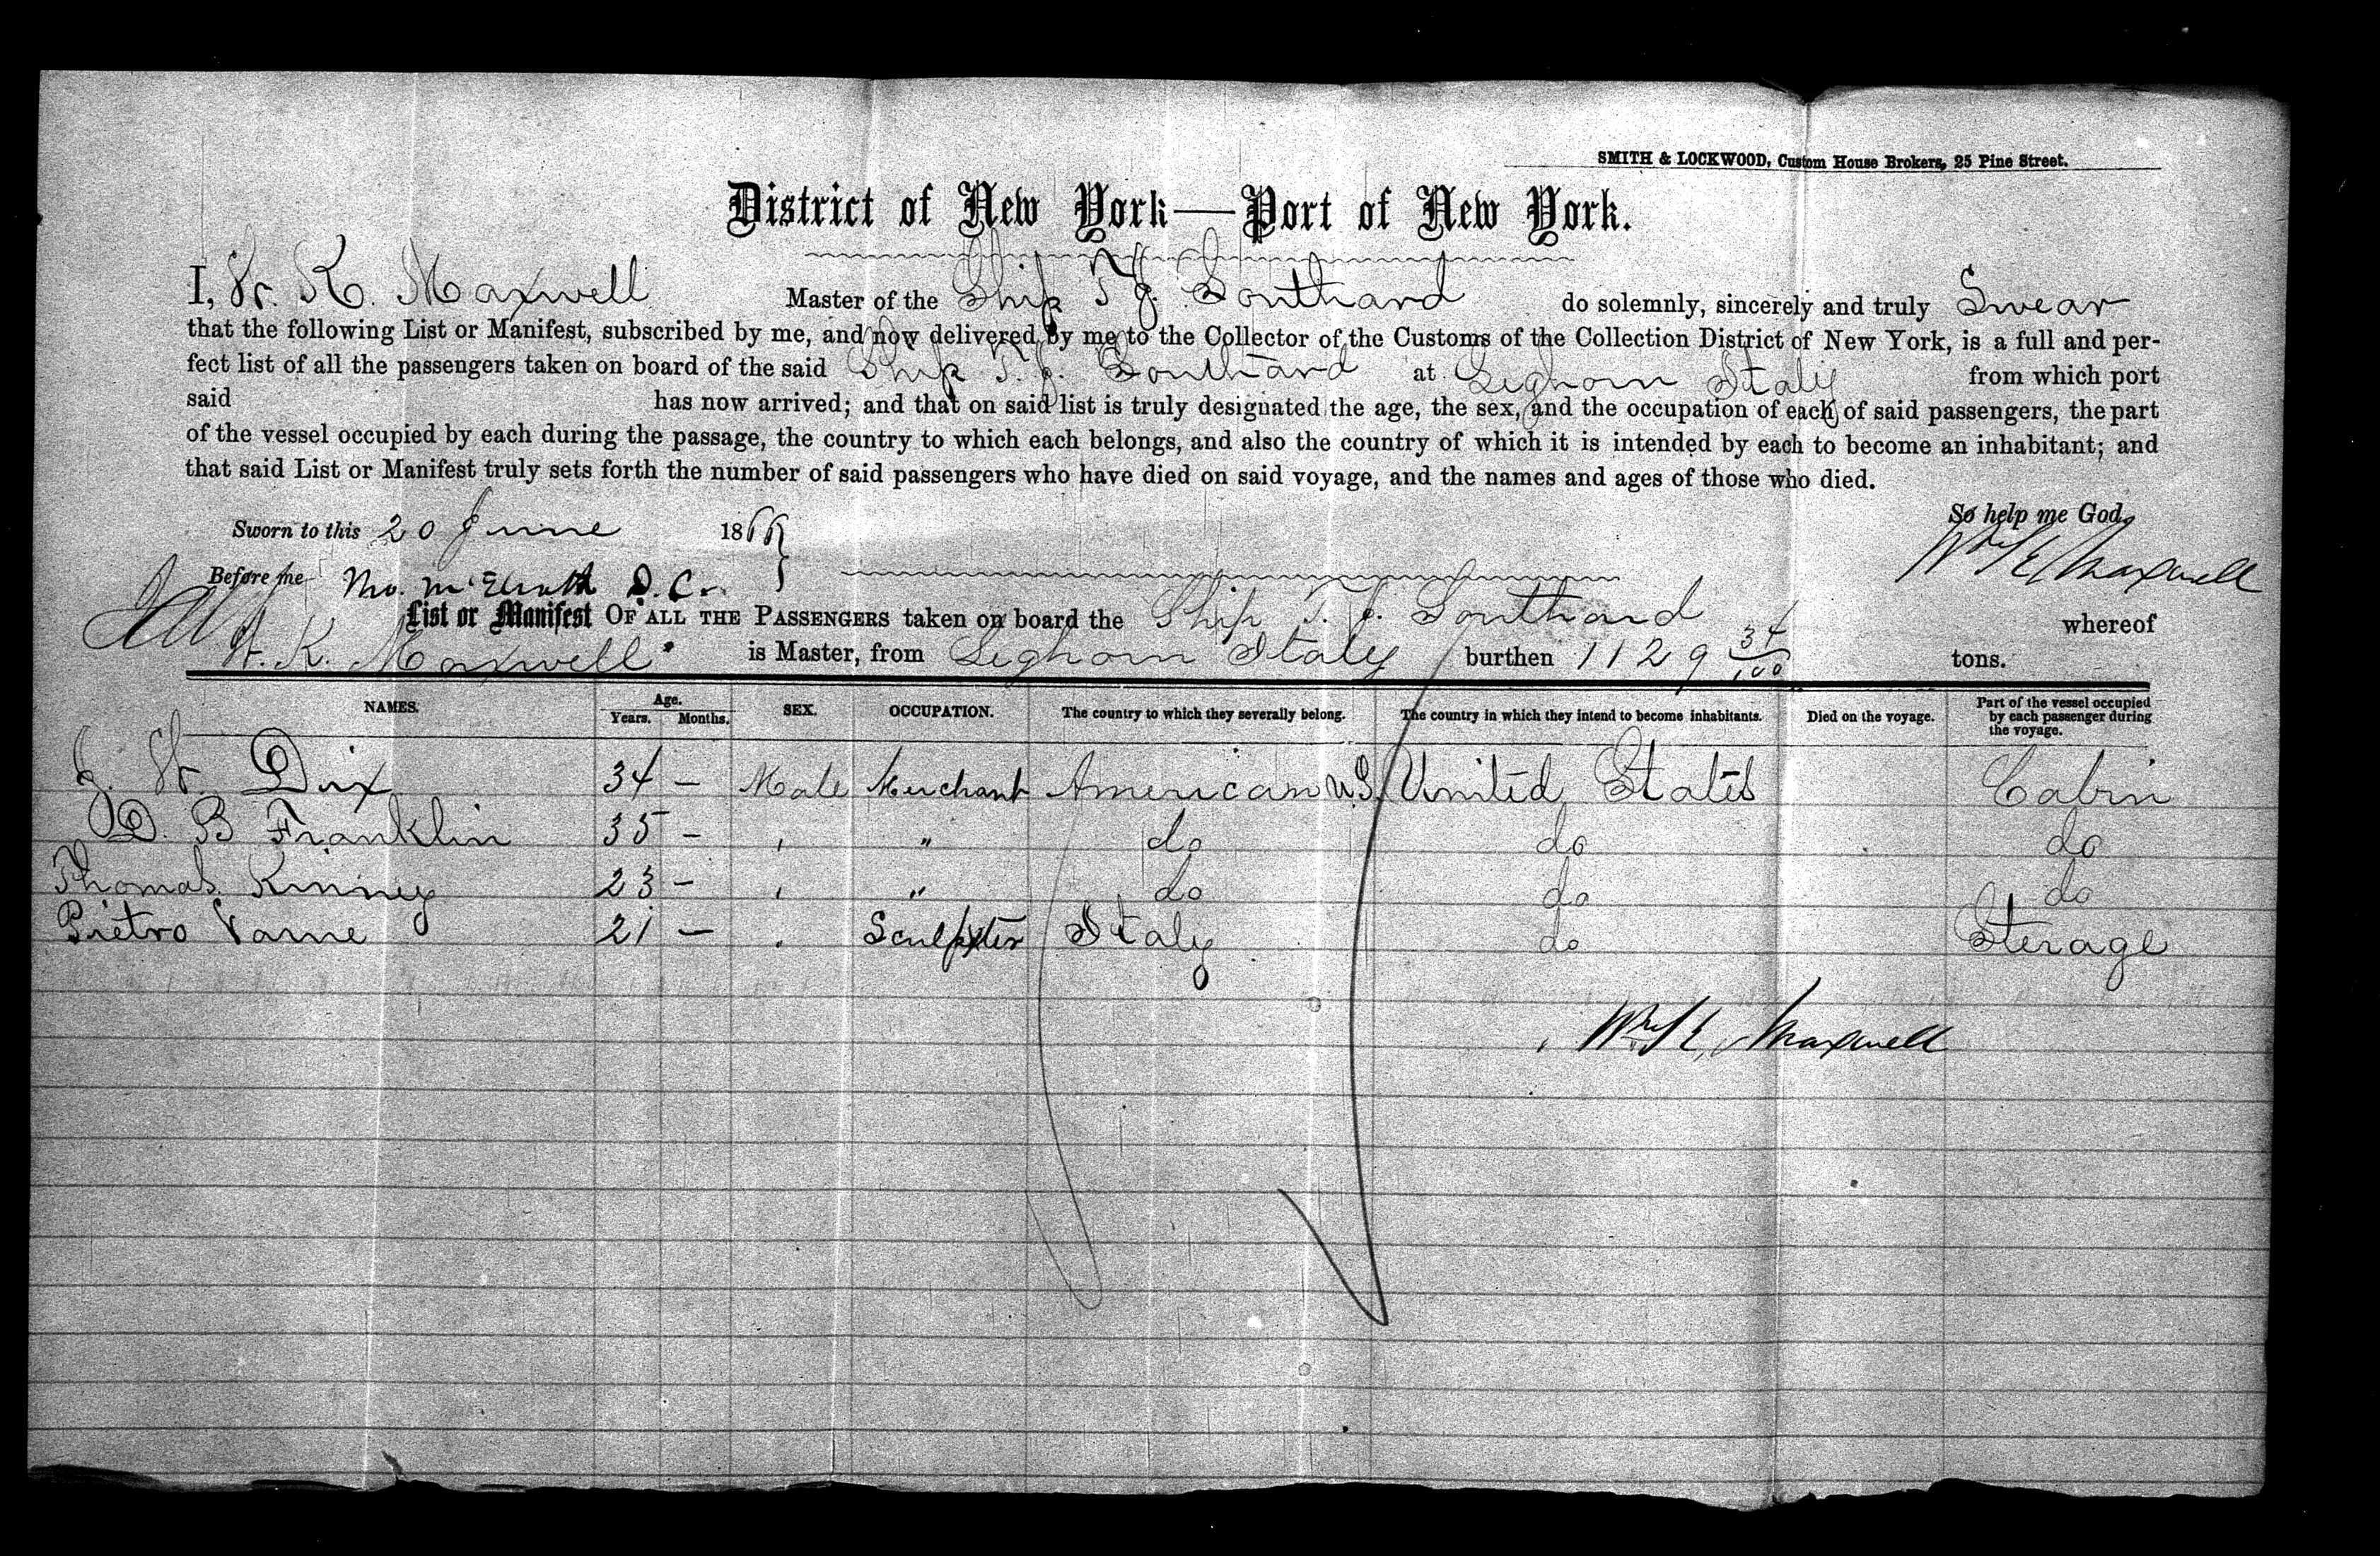 SMITH & LOCKWOOD, Custom House Brokers, 25 Pine Street.
District of New York—Port of New York.
I, W. K. Maxwell Master of the Ship T. J. Southard do solemnly, sincerely and truly Swear
that the following List or Manifest, subscribed by me, and now delivered by me to the Collector of the Customs of the Collection District of New York, is a full and per-
fect list of all the passengers taken on board of the said Ship T. J. Southard at Leghorn Italy from which port
said has now arrived; and that on said list is truly designated the age, the sex, and the occupation of each of said passengers, the part
of the vessel occupied by each during the passage, the country to which each belongs, and also the country of which it is intended by each to become an inhabitant; and
that said List or Manifest truly sets forth the number of said passengers who have died on said voyage, and the names and ages of those who died.
So help me God.
Sworn to this 20 June 1866
Wm K Maxwell
Before me Tho. McElrath D. C.
List or Manifest OF ALL THE PASSENGERS taken on board the Ship T. J. Southard whereof
W. K. Maxwell is Master, from Leghorn Italy burthen 1129 34/100 tons.
NAMES. Age. Years. Months. SEX. OCCUPATION. The country to which they severally belong. The country in which they intend to become inhabitants. Died on the voyage. Part of the vessel occupied by each passenger during the voyage.
J. W. Dix 34 — Male Merchant American U.S. United States Cabin
D. B Franklin 35 — " " do do do
Thomas Kinney 23 — " " do do do
Pietro Varne 21 — " Sculpter Italy do Sterage
Wm K Maxwell